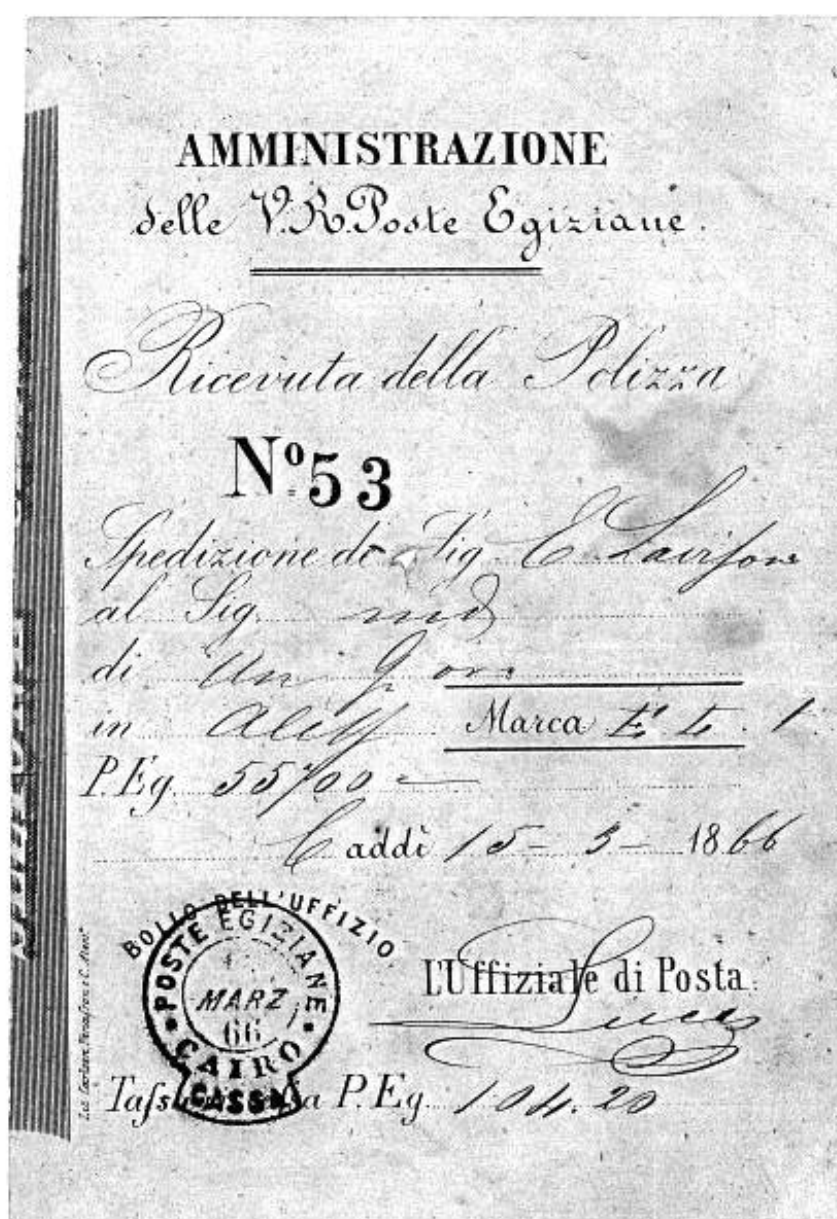 AMMINISTRAZIONE
delle V.R. Poste Egiziane.
Ricevuta della Polizza
Nº 53
Spedizione de Sig. E.
al Sig.
di
in Marca E. L. 1.
P. Eg. 55700
C addì 15 - 3 - 1866
BOLLO DELL'UFFIZIO
POSTE EGIZIANE
MARZ
66
CAIRO
CASSA
L'Uffiziale di Posta
P. Eg. 104.20